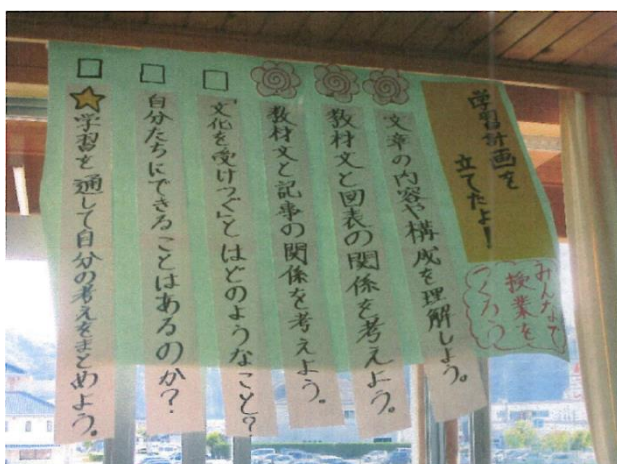 学習計画を
立てたよ!
みんなで
授業を
つくろう
文章の内容や構成を理解しよう。
教材文と図表の関係を考えよう。
教材文と記事の関係を考えよう。
「文化を受けつぐ」とはどのようなこと?
自分たちにできることはあるのか?
学習を通して自分の考えをまとめよう。